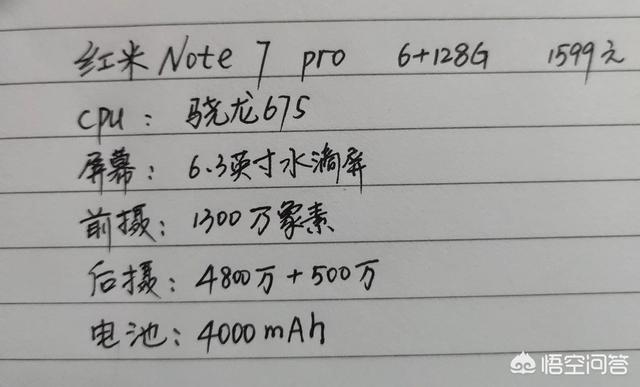 红米Note 7 pro 6+128G 1599元
cpu: 骁龙675
屏幕: 6.3英寸水滴屏
前摄: 1300万象素
后摄: 4800万+500万
电池: 4000mAh
悟空问答